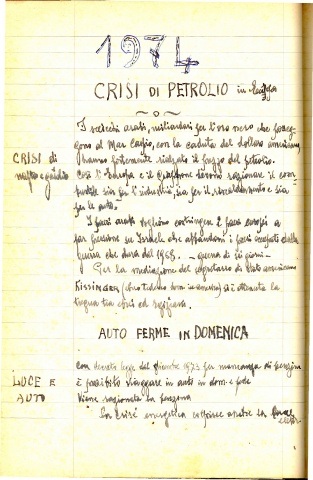 1974
CRISI DI PETROLIO in Europa
I sceicchi arabi, miliardari per l'oro nero che posseg-
gono al Mar Caspio, con la caduta del dollaro americano,
CRISI di
hanno fortemente rialzato il prezzo del petrolio.
Così l'Europa e il Giappone devono razionare il com-
bustibile sia per l'industria, sia per il riscaldamento e sia
per le auto.
I paesi arabi vogliono costringere i paesi europei a
far pressione su Israele che abbandoni i paesi occupati dalla
guerra che dura dal 1968. - guerra di sei giorni -
Per la mediazione del segretario di stato americano
KISSINGER (ebreo tedesco di) si è ottenuta la
tregua tra ebrei ed egiziani.
AUTO FERME IN DOMENICA
Con decreto legge del dicembre 1973 per mancanza di benzina
LUCE E
è proibito viaggiare in auto in dom. e feste
AUTO
Viene razionata la benzina
La crisi energetica colpisce anche la luce
elettr.